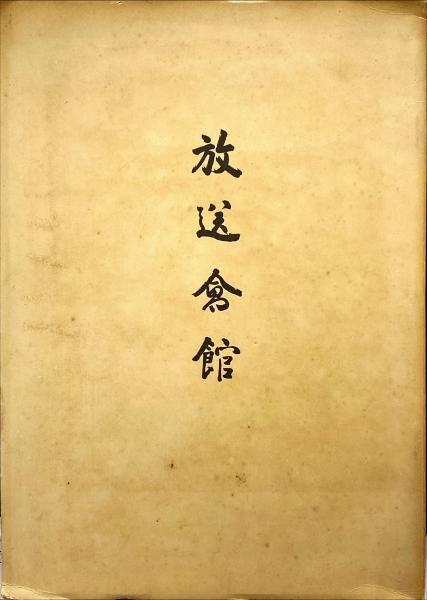 放送會館